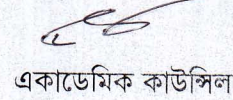 একাডেমিক কাউন্সিল